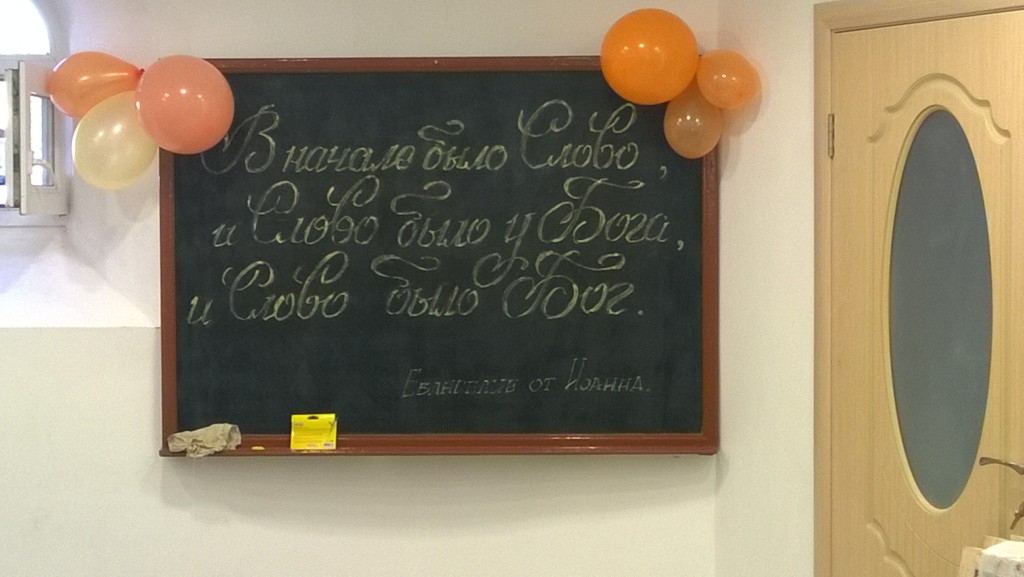 В начале было Слово,
и Слово было у Бога,
и Слово было Бог.
Евангелие от Иоанна.